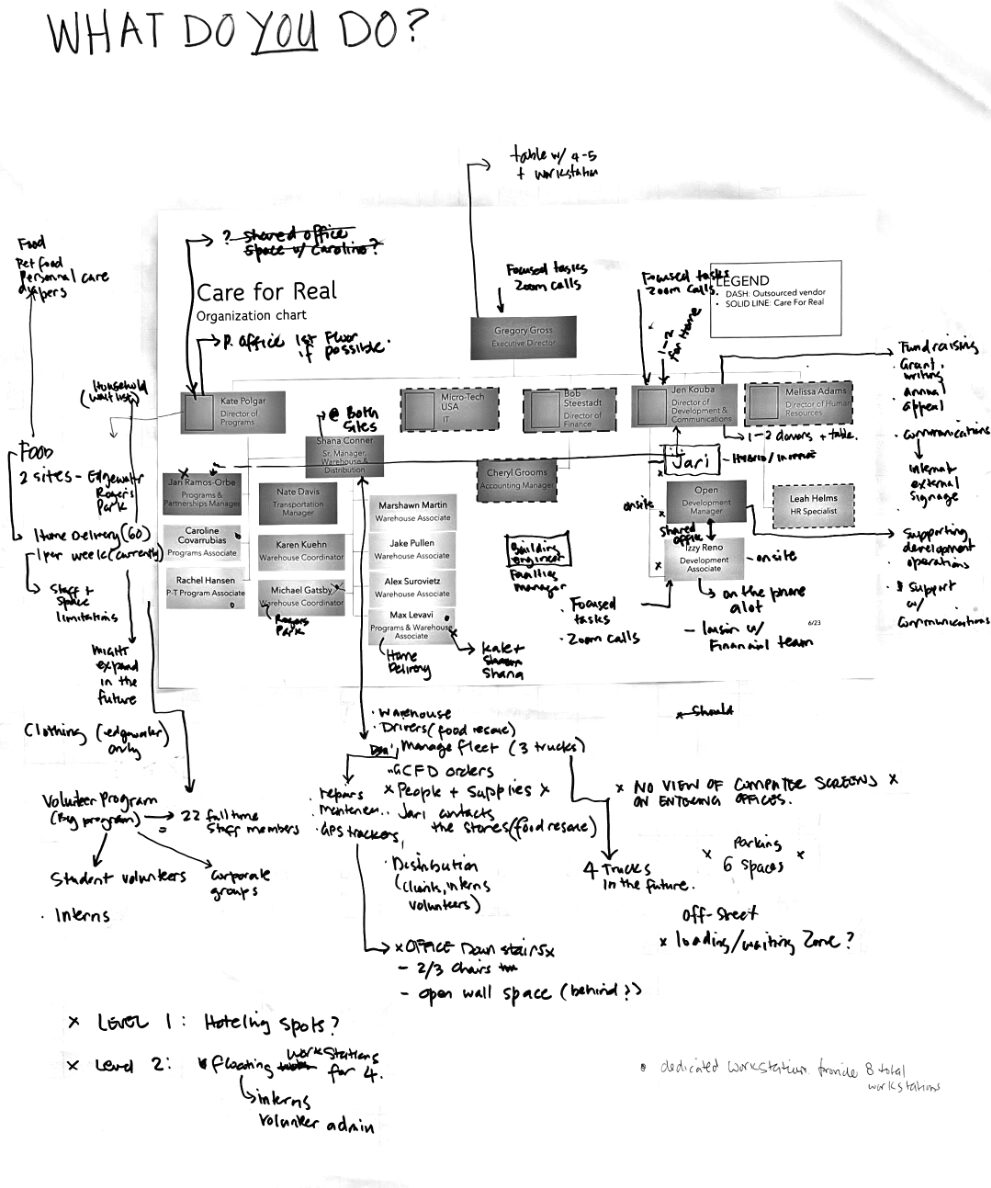 WHAT DO YOU DO?
table w/ 4-5
+ workstation
? shared office
space w/ Caroline?
Food
Pet food
Personal care
diapers
Care for Real
Organization chart
P. office 1st Floor
if possible.
Focused tasks
Zoom calls
Focused tasks
Zoom calls
1-2
for Home
LEGEND
• DASH: Outsourced vendor
• SOLID LINE: Care For Real
Gregory Gross
Executive Director
Household
(wait list)
Kate Polgar
Director of
Programs
@ Both
Sites
Micro-Tech
USA
IT
Bob
Steestadt
Director of
Finance
Jen Kouba
Director of
Development &
Communications
Melissa Adams
Director of Human
Resources
Fundraising
Grant
writing
annual
appeal
• Communications
internal
external
signage
1-2 donors + table.
Shana Conner
Sr. Manager,
Warehouse &
Distribution
Jari
- Hybrid/
FOOD
2 sites - Edgewater
Rogers
Park
Jari Ramos-Orbe
Programs &
Partnerships Manager
Nate Davis
Transportation
Manager
Cheryl Grooms
Accounting Manager
onsite
Open
Development
Manager
Leah Helms
HR Specialist
Marshawn Martin
Warehouse Associate
Home Delivery (60)
1 per week (currently)
Caroline
Covarrubias
Programs Associate
Karen Kuehn
Warehouse Coordinator
Jake Pullen
Warehouse Associate
Building
engineer
Facilities
manager
shared
office
Izzy Reno
Development
Associate
- onsite
Supporting
development
operations
• Support
w/
Communications
Staff +
Space
limitations
Rachel Hansen
P-T Program Associate
Michael Gatsby
Warehouse Coordinator
Rogers
Park
Alex Surovietz
Warehouse Associate
Max Levavi
Programs & Warehouse
Associate
Home
Delivery
Kate +
Shana
• Focused
tasks
• Zoom calls
on the phone
alot
- w/
Financial team
6/23
might
expand
in the
future
x Should
Clothing (edgewater)
only
• Warehouse
• Drivers (food rescue)
Manage fleet (3 trucks)
GCFD orders
x People + Supplies x
• repairs
GPS trackers
Jari contacts
the stores (food rescue)
• Distribution
(clients, interns
volunteers)
x NO VIEW OF COMPUTER SCREENS x
ON ENTERING OFFICES.
4 Trucks
in the future.
x Parking x
6 spaces
off-street
x loading/waiting zone?
Volunteer Program
(Big program)
22 full time
staff members
Student volunteers
Corporate
groups
• Interns
x OFFICE Down stairs x
- 2/3 chairs
- open wall space (behind?)
x LEVEL 1: Hoteling spots?
x Level 2: Floating workstations
for 4.
interns
volunteer admin
• dedicated workstation provide 8 total
workstations